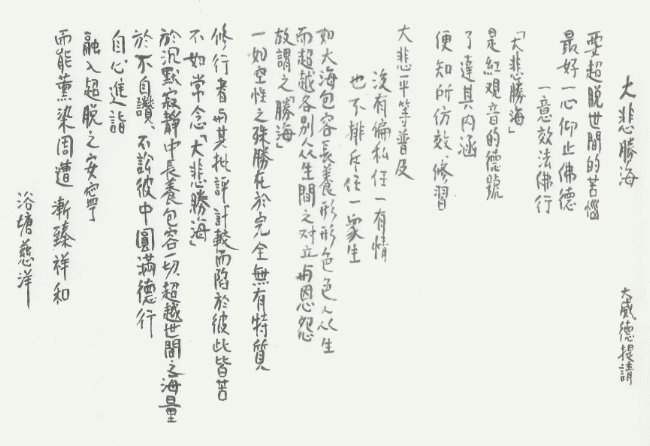 大悲勝海
大威德提請
要超脫世間的苦惱
最好一心仰止佛德
一意效法佛行
「大悲勝海」
是紅觀音的德號
了達其內涵
便知所仿效修習
大悲平等普及
沒有偏私任一有情
也不排斥任一衆生
如大海包容長養形形色色众生
而超越各別众生間之对立與恩怨
故謂之「勝海」
一如空性之殊勝在於完全無有特質
修行者與其批評計較而陷於彼此皆苦
不如常念「大悲勝海」
於沉默寂靜中長養包容一切超越世間之海量
於不自讚不訟彼中圓滿德行
自心進詣
融入超脫之安寧
而能薰染周遭漸臻祥和
浴塘慈洋